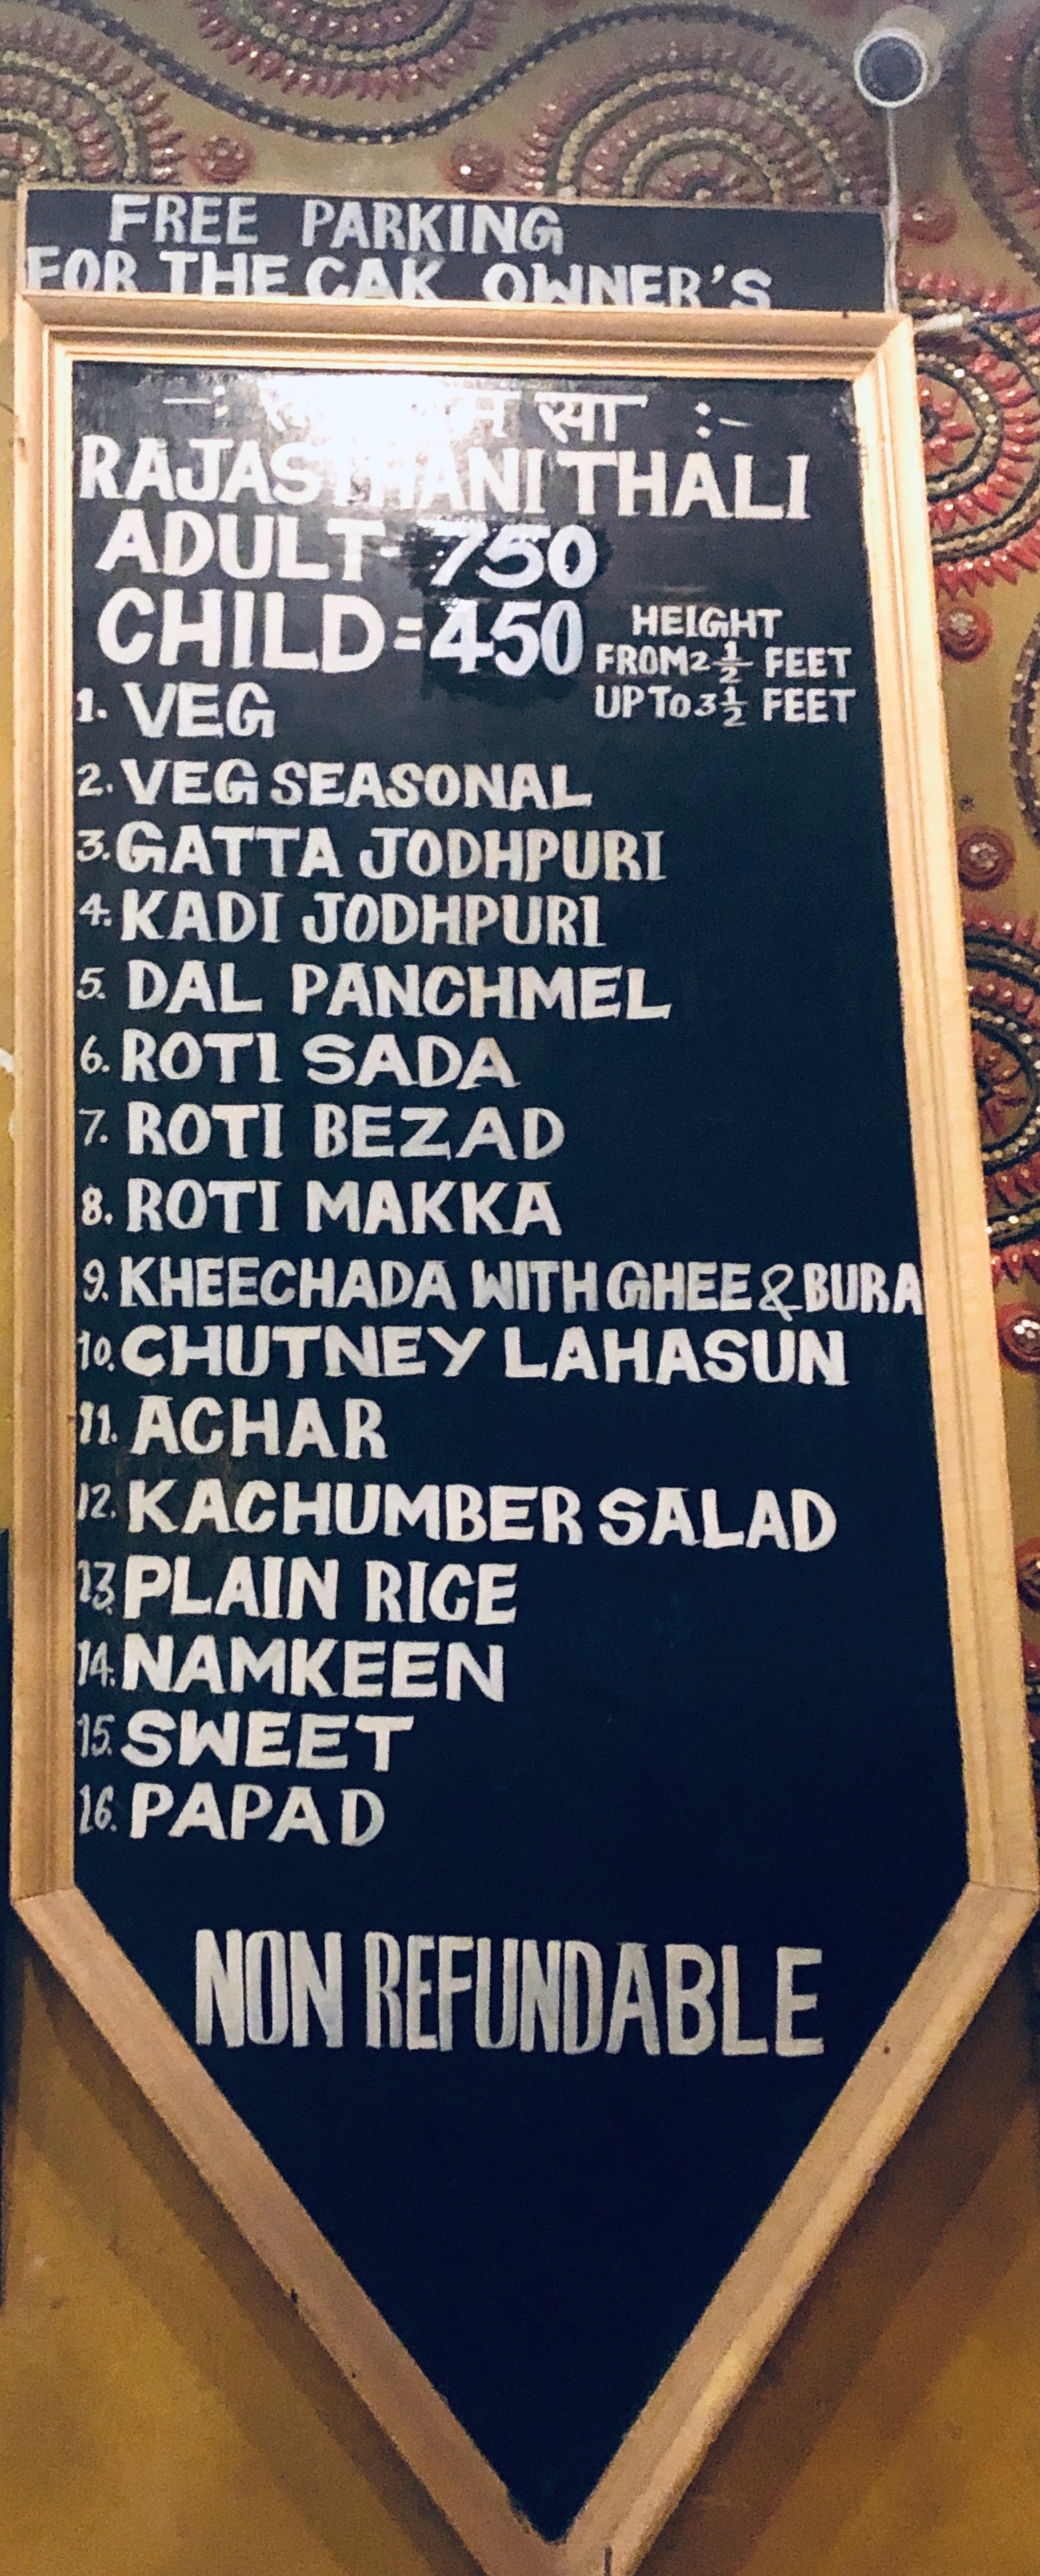 FREE PARKING
FOR THE CAR OWNER'S
-: सा :-
RAJASTHANI THALI
ADULT- 750
CHILD=450
HEIGHT
FROM 2 1/2 FEET
UP TO 3 1/2 FEET
1. VEG
2. VEG SEASONAL
3. GATTA JODHPURI
4. KADI JODHPURI
5. DAL PANCHMEL
6. ROTI SADA
7. ROTI BEZAD
8. ROTI MAKKA
9. KHEECHADA WITH GHEE & BURA
10. CHUTNEY LAHASUN
11. ACHAR
12. KACHUMBER SALAD
13. PLAIN RICE
14. NAMKEEN
15. SWEET
16. PAPAD
NON REFUNDABLE